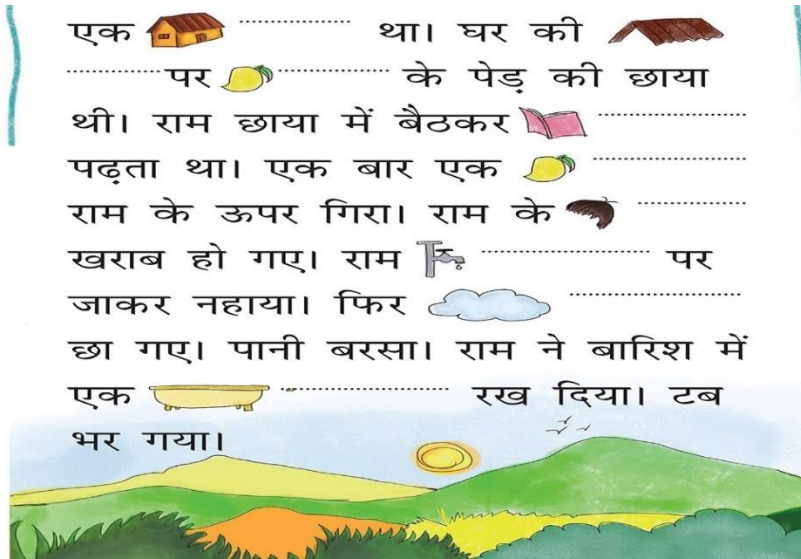 एक ............... था। घर की
............ पर ............... के पेड़ की छाया
थी। राम छाया में बैठकर ...............
पढ़ता था। एक बार एक ...............
राम के ऊपर गिरा। राम के ...............
खराब हो गए। राम ............... पर
जाकर नहाया। फिर ...............
छा गए। पानी बरसा। राम ने बारिश में
एक ............... रख दिया। टब
भर गया।